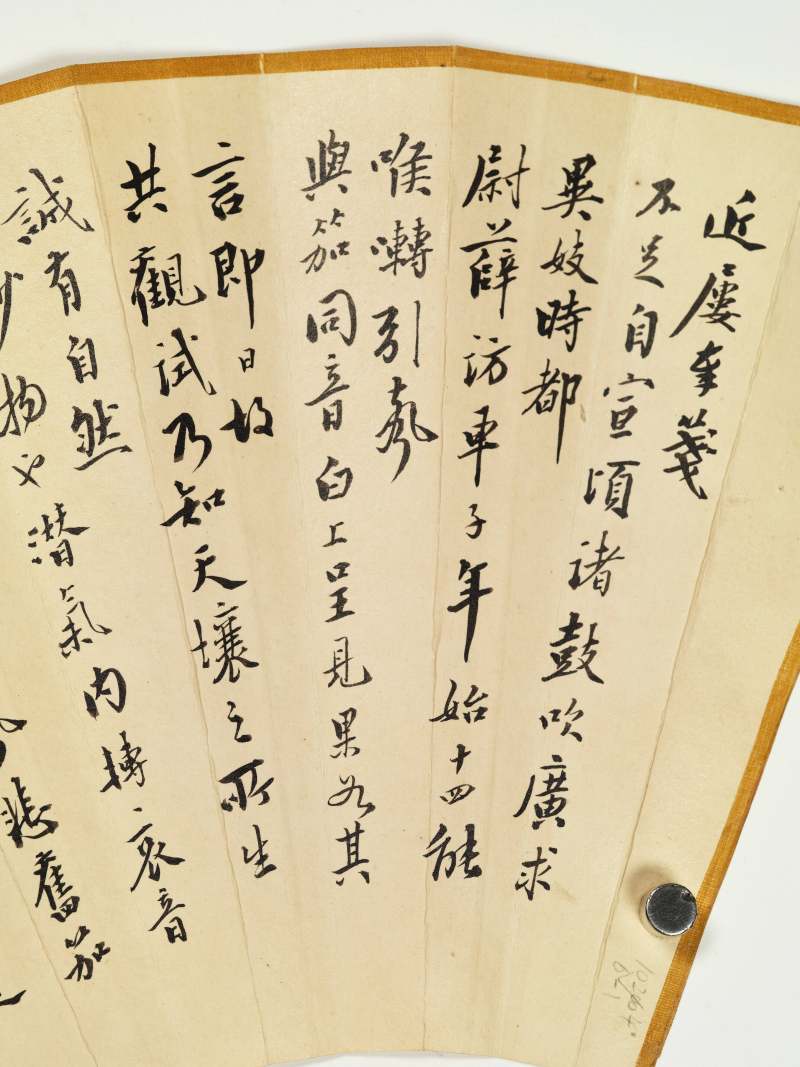 近屢奉箋
不足自宣頃諸鼓吹廣求
異妓時都
尉薛訪車子年始十四能
喉囀引聲
與笳同音白上呈見果如其
言即日故
共觀試乃知天壤之所生
誠有自然
妙物也潛氣內摶哀音
悲舊笳